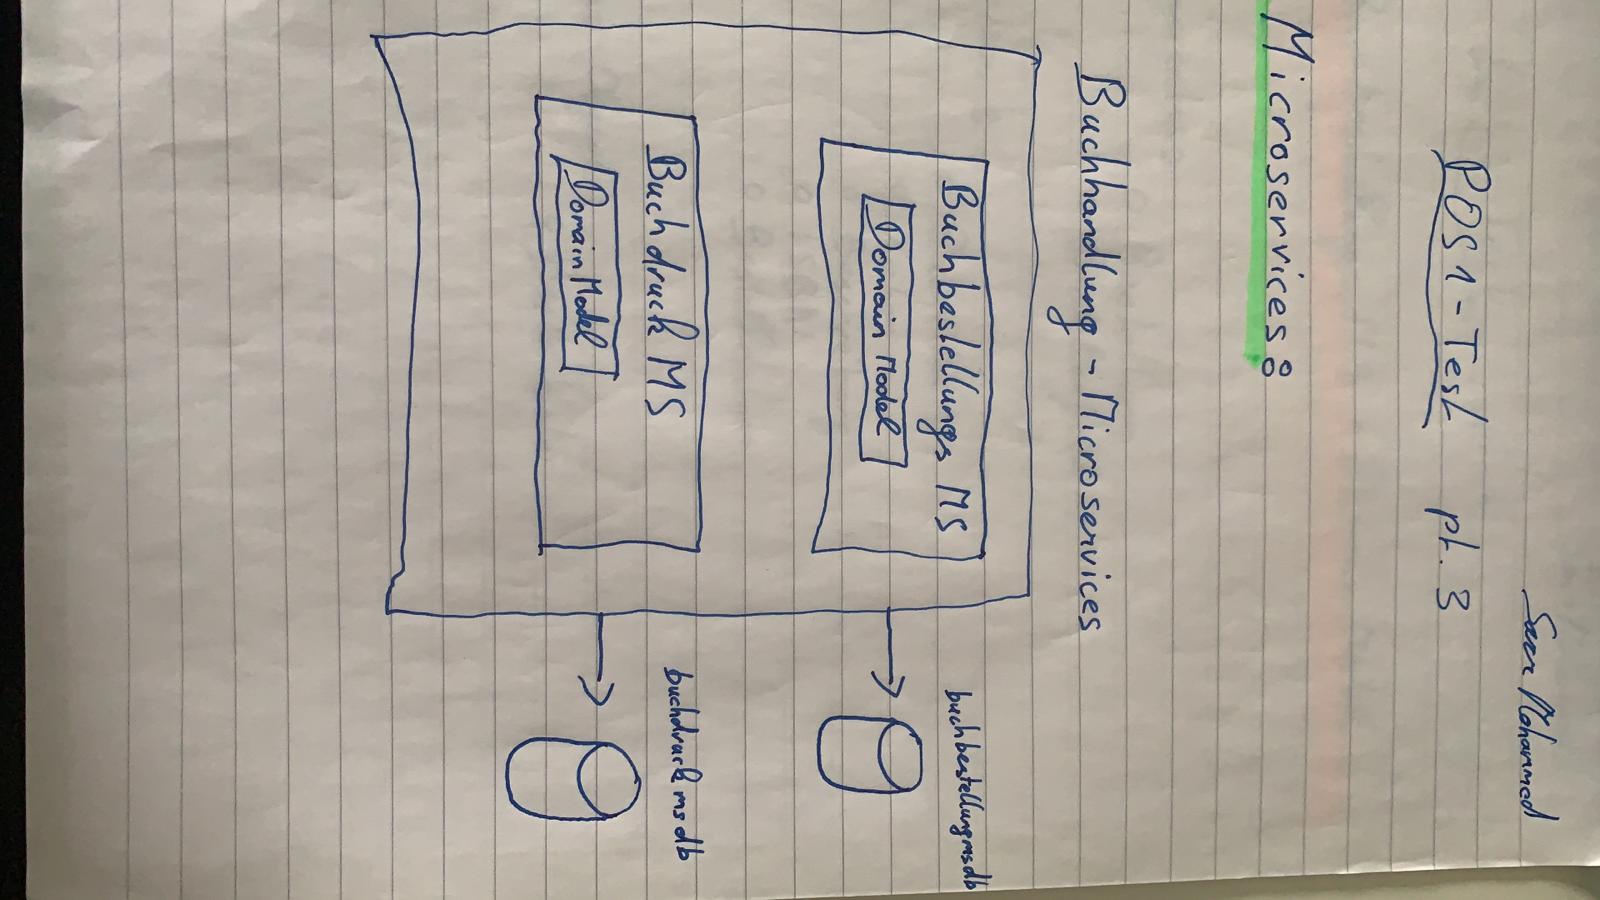 Sarr Mohammed
POS1-Test pt. 3
Microservices:
Buchhandlung - Microservices
Buchbestellungs MS
Domain Model
buchbestellungmsdb
Buchdruck MS
Domain Model
buchdruckmsdb